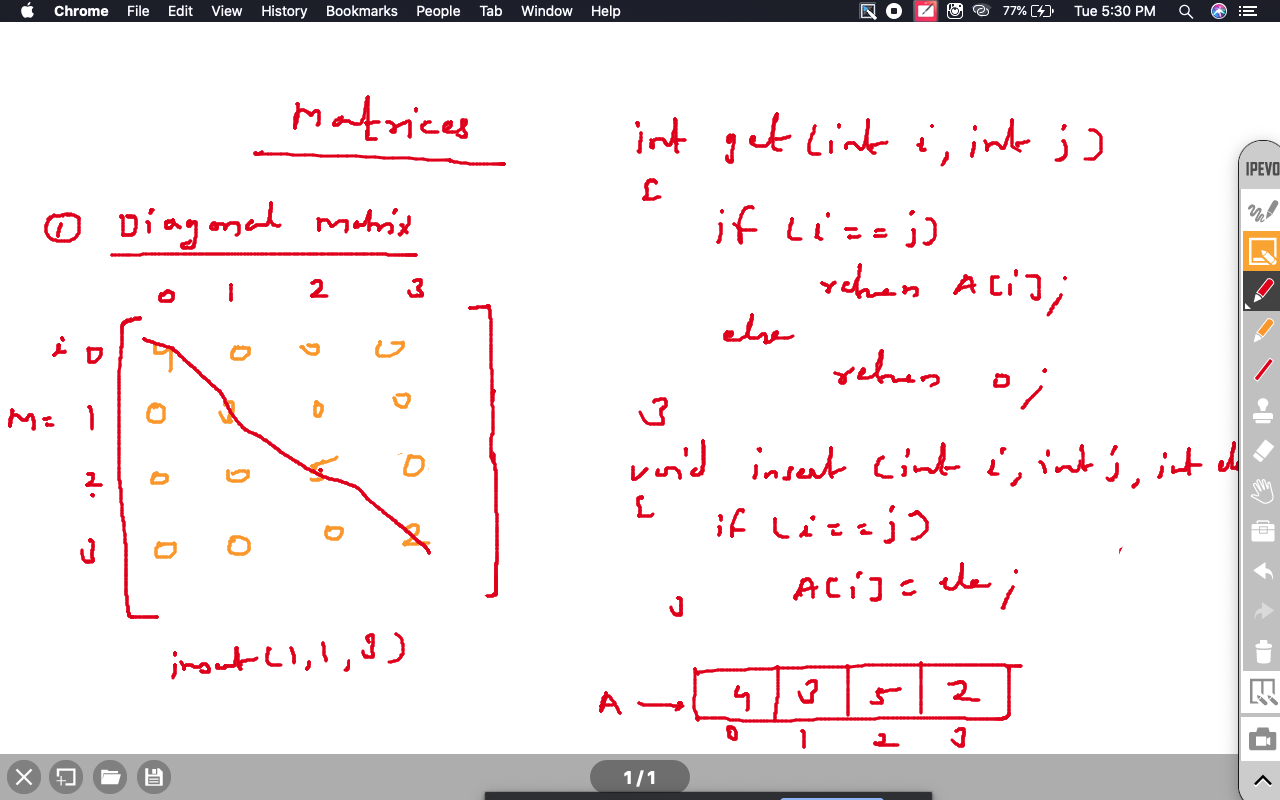 Chrome File Edit View History Bookmarks People Tab Window Help 77% Tue 5:30 PM
Matrices
① Diagonal matrix
0 1 2 3
i 0 4 0 0 0
M= 1 0 3 0 0
2 0 0 5 0
3 0 0 0 2
insert(1,1,3)
int get(int i, int j)
{
if (i==j)
return A[i];
else
return 0;
}
void insert (int i, int j, int ele
{
if (i==j)
A[i] = ele;
}
A → 4 3 5 2
0 1 2 3
IPEVO
1/1